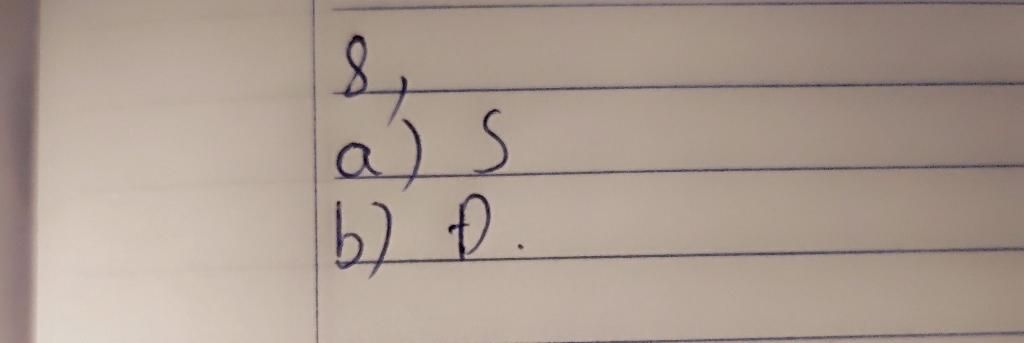 8,
a) S
b) Đ.